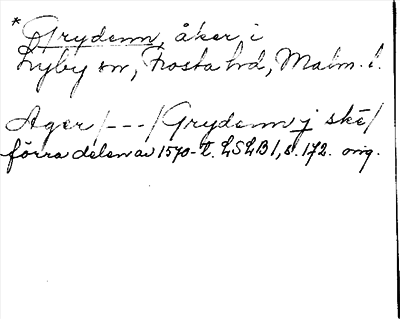 * Grydenn, åker i
Lyby sn, Frosta hd, Malm. l.
Ager /---/ Grydenn j ske /
förra delen av 1570-t. LSLB 1, s. 172. orig.